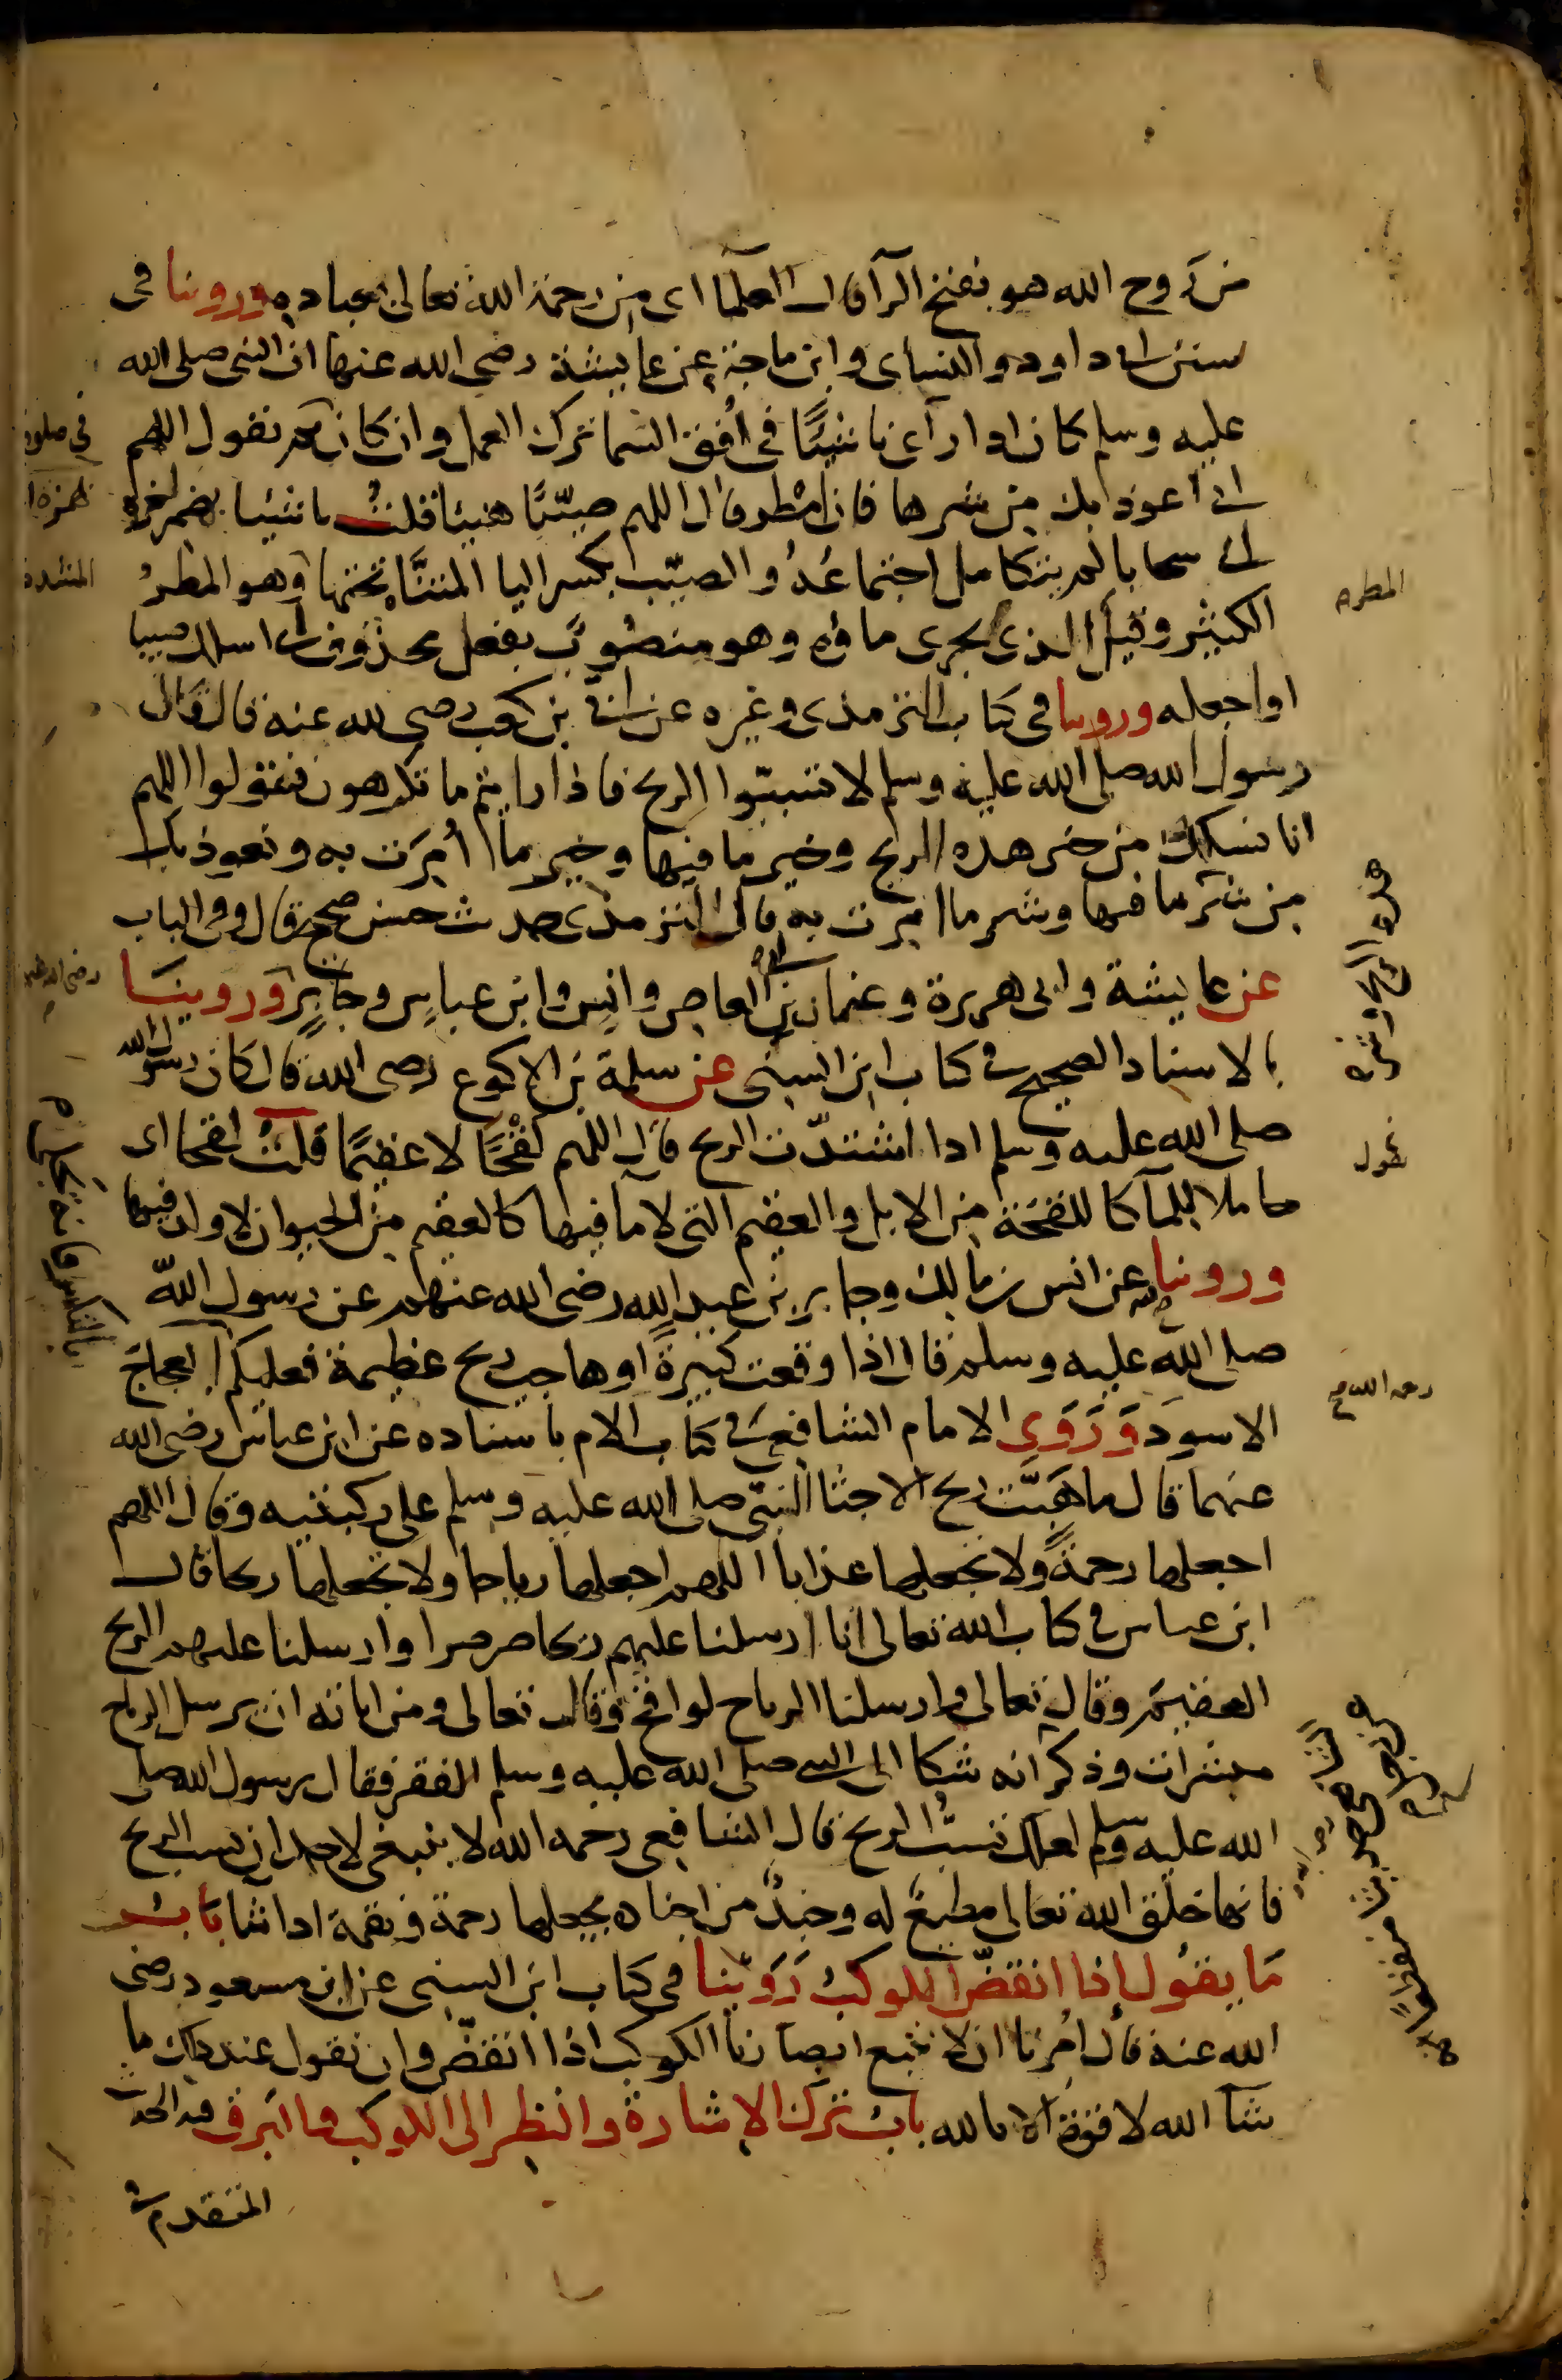 من روح الله هو بفتح الرآ قال العلما اى من رحمة الله تعالى بعباده وروينا فى
سنن ابى داود والنسأى وابن ماجة عن عايشة رضي الله عنها ان النبى صلى الله
عليه وسلم كان اذا رآى ناشئًا فى أفق السما ترك العمل وان كان فى صلوة ثم يقول اللهم
انى أعوذ بك من شرها فان مُطر قال اللهم صيّبًا هنيئا قلتُ ناشئا بهمز اخره
اى سحابا لم يتكامل اجتماعُهُ والصيّب بكسر اليا المثناة تحتها المشددة وهو المطرُ
الكثير وقيل المطر الذى يجرى ماؤه وهو منصوبٌ بفعل محذوف اى اسالك صيبا
او اجعله وروينا فى كتاب الترمذى وغيره عن ابىّ بن كعب رضى الله عنه قال قال
رسول الله صلى الله عليه وسلم لا تسبّوا الريح فاذا رايتم ما تكرهون فقولوا اللهم
انا نسالك من خير هذه الريح وخير ما فيها وخير ما أُمرت به ونعوذ بك
من شر هذه الريح وشر ما فيها وشر ما امرت به قال الترمذى حديث حسن صحيح قال وفى الباب
عن عايشة وابى هريرة وعثمان بن ابى العاص وانس وابن عباس وجابر وروينا
بالاسناد الصحيح فى كتاب ابن السنى عن سلمة بن الاكوع رضى الله قال كان رسول الله
صلى الله عليه وسلم اذا اشتدّت الريح يقول اللهم لَقْحًا لا عقيمًا قلت لقحا اى
حاملا للمآ كاللقحة من الابل والعقيم التى لا مآ فيها كالعقيم من الحيوان لا ولد فيها
وروينا فيه عن انس بن مالك وجابر بن عبد الله رضى الله عنهم عن رسول الله
صلى الله عليه وسلم قال اذا وقعت كبيرةً او هاجت ريح عظيمة فعليكم بالتكبير فانه يجلى العجاج
الاسود وَرَوَى الامام الشافعى رحمه الله فى كتاب الام باسناده عن ابن عباس رضى الله
عنهما قال ما هَبّت ريح الا جثا النبى صلى الله عليه وسلم على ركبتيه وقال اللهم
اجعلها رحمةً ولا تجعلها عذابا اللهم اجعلها رياحا ولا تجعلها ريحا قال
ابن عباس فى كتاب الله تعالى انا ارسلنا عليهم ريحا صرصرا وارسلنا عليهم الريح
العقيم وقال تعالى وارسلنا الرياح لواقح وقال تعالى ومن اياته ان يرسل الرياح
مبشرات وذكر الشافعى رحمه الله حديثا منقطعا انه شكا الى النبى صلى الله عليه وسلم الفقر فقال رسول الله صلى
الله عليه وسلم لعلك تسبُّ الريح قال الشافعى رحمه الله لا ينبغى لاحد ان يسب الريح
فانها خلق الله تعالى مطيع له وجندٌ من اجناده يجعلها رحمة ونقمة اذا شا بابُ
مَا يقول إذا انقضّ الكوكبُ رَوَينا فى كتاب ابن السنى عن ابن مسعود رضى
الله عنه قال أمرنا ان لا نتبع ابصارنا الكوكب اذا انقضّ وان نقول عند ذلك ما
شآ الله لا قوة الا بالله بابُ ترك الإشارة والنظر الى الكوكب والبرق فيه الحديث
المتقدم